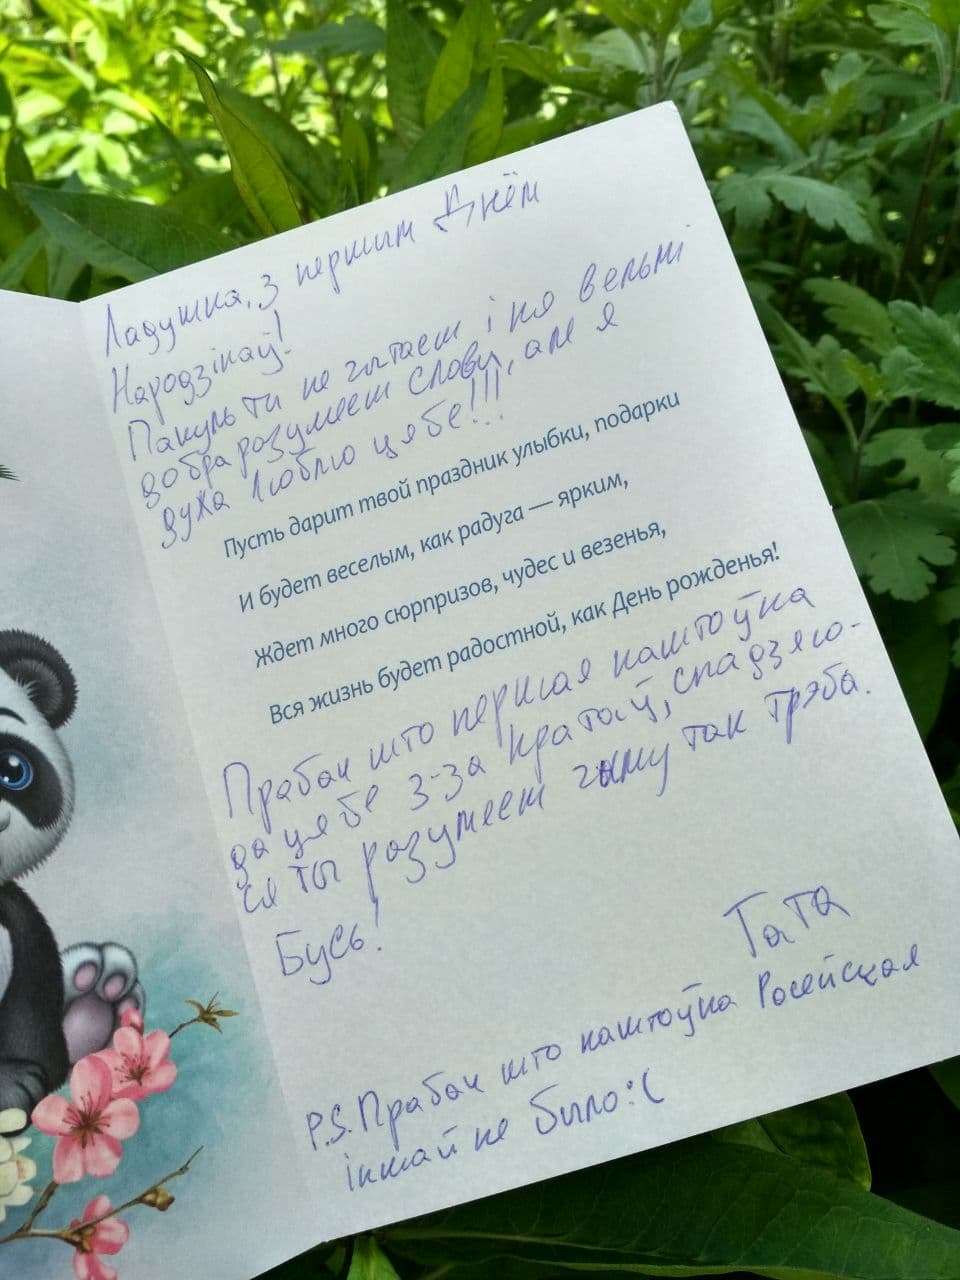 Ладушка, з першим Днём
Народзінаў!
Пакуль ти не читаеш і не вельмі
добра разумееш словы, але я
дужа люблю цябе!!!
Пусть дарит твой праздник улыбки, подарки
И будет веселым, как радуга — ярким,
Ждет много сюрпризов, чудес и везенья,
Вся жизнь будет радостной, как День рожденья!
Прабач што першая паштоўка
да цябе з-за кратаў, спадзяю-
ся ты разумееш чаму так трэба.
Бусь!
Тата
P.S. Прабач што паштоўка Расейская
іншай не было :(